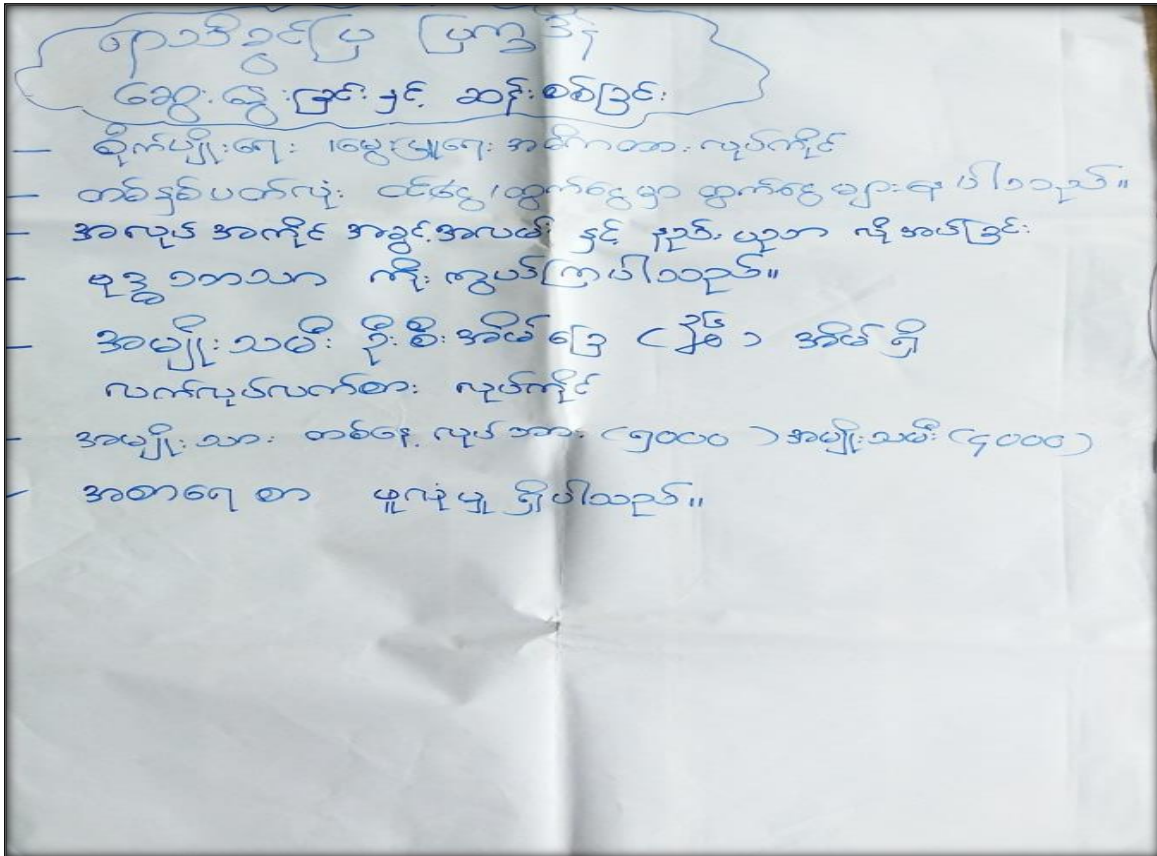 ရာသီခွင်ပြ ပြက္ခဒိန်
ဆွေးနွေးခြင်းနှင့် ဆန်းစစ်ခြင်း
— စိုက်ပျိုးရေး၊ မွေးမြူရေး အဓိကထား လုပ်ကိုင်
— တစ်နှစ်ပတ်လုံး ဝင်ငွေ/ထွက်ငွေမှာ ထွက်ငွေ များနေပါသည်။
— အလုပ်အကိုင် အခွင့်အလမ်း နှင့် နည်းပညာ လိုအပ်ခြင်း
— ဗုဒ္ဓဘာသာ ကိုးကွယ်ကြပါသည်။
— အမျိုးသမီး ဦးစီး အိမ်ခြေ ( ) အိမ် ရှိ
လက်လုပ်လက်စား လုပ်ကိုင်
— အမျိုးသား တစ်နေ့ လုပ်အား (၅၀၀၀) အမျိုးသမီး (၄၀၀၀)
— အစာရေစာ ဖူလုံမှု ရှိပါသည်။